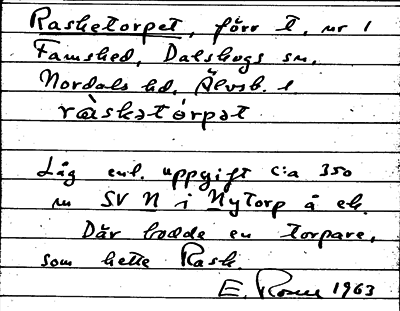 Rasketorpet, förr t. nr 1
Famshed, Dalskogs sn.
Nordals hd, Älvsb. l.
ràskətórpət
Låg enl. uppgift c:a 350
m SV N i Nytorp å ek.
Där bodde en torpare,
som hette Rask.
E. 1963